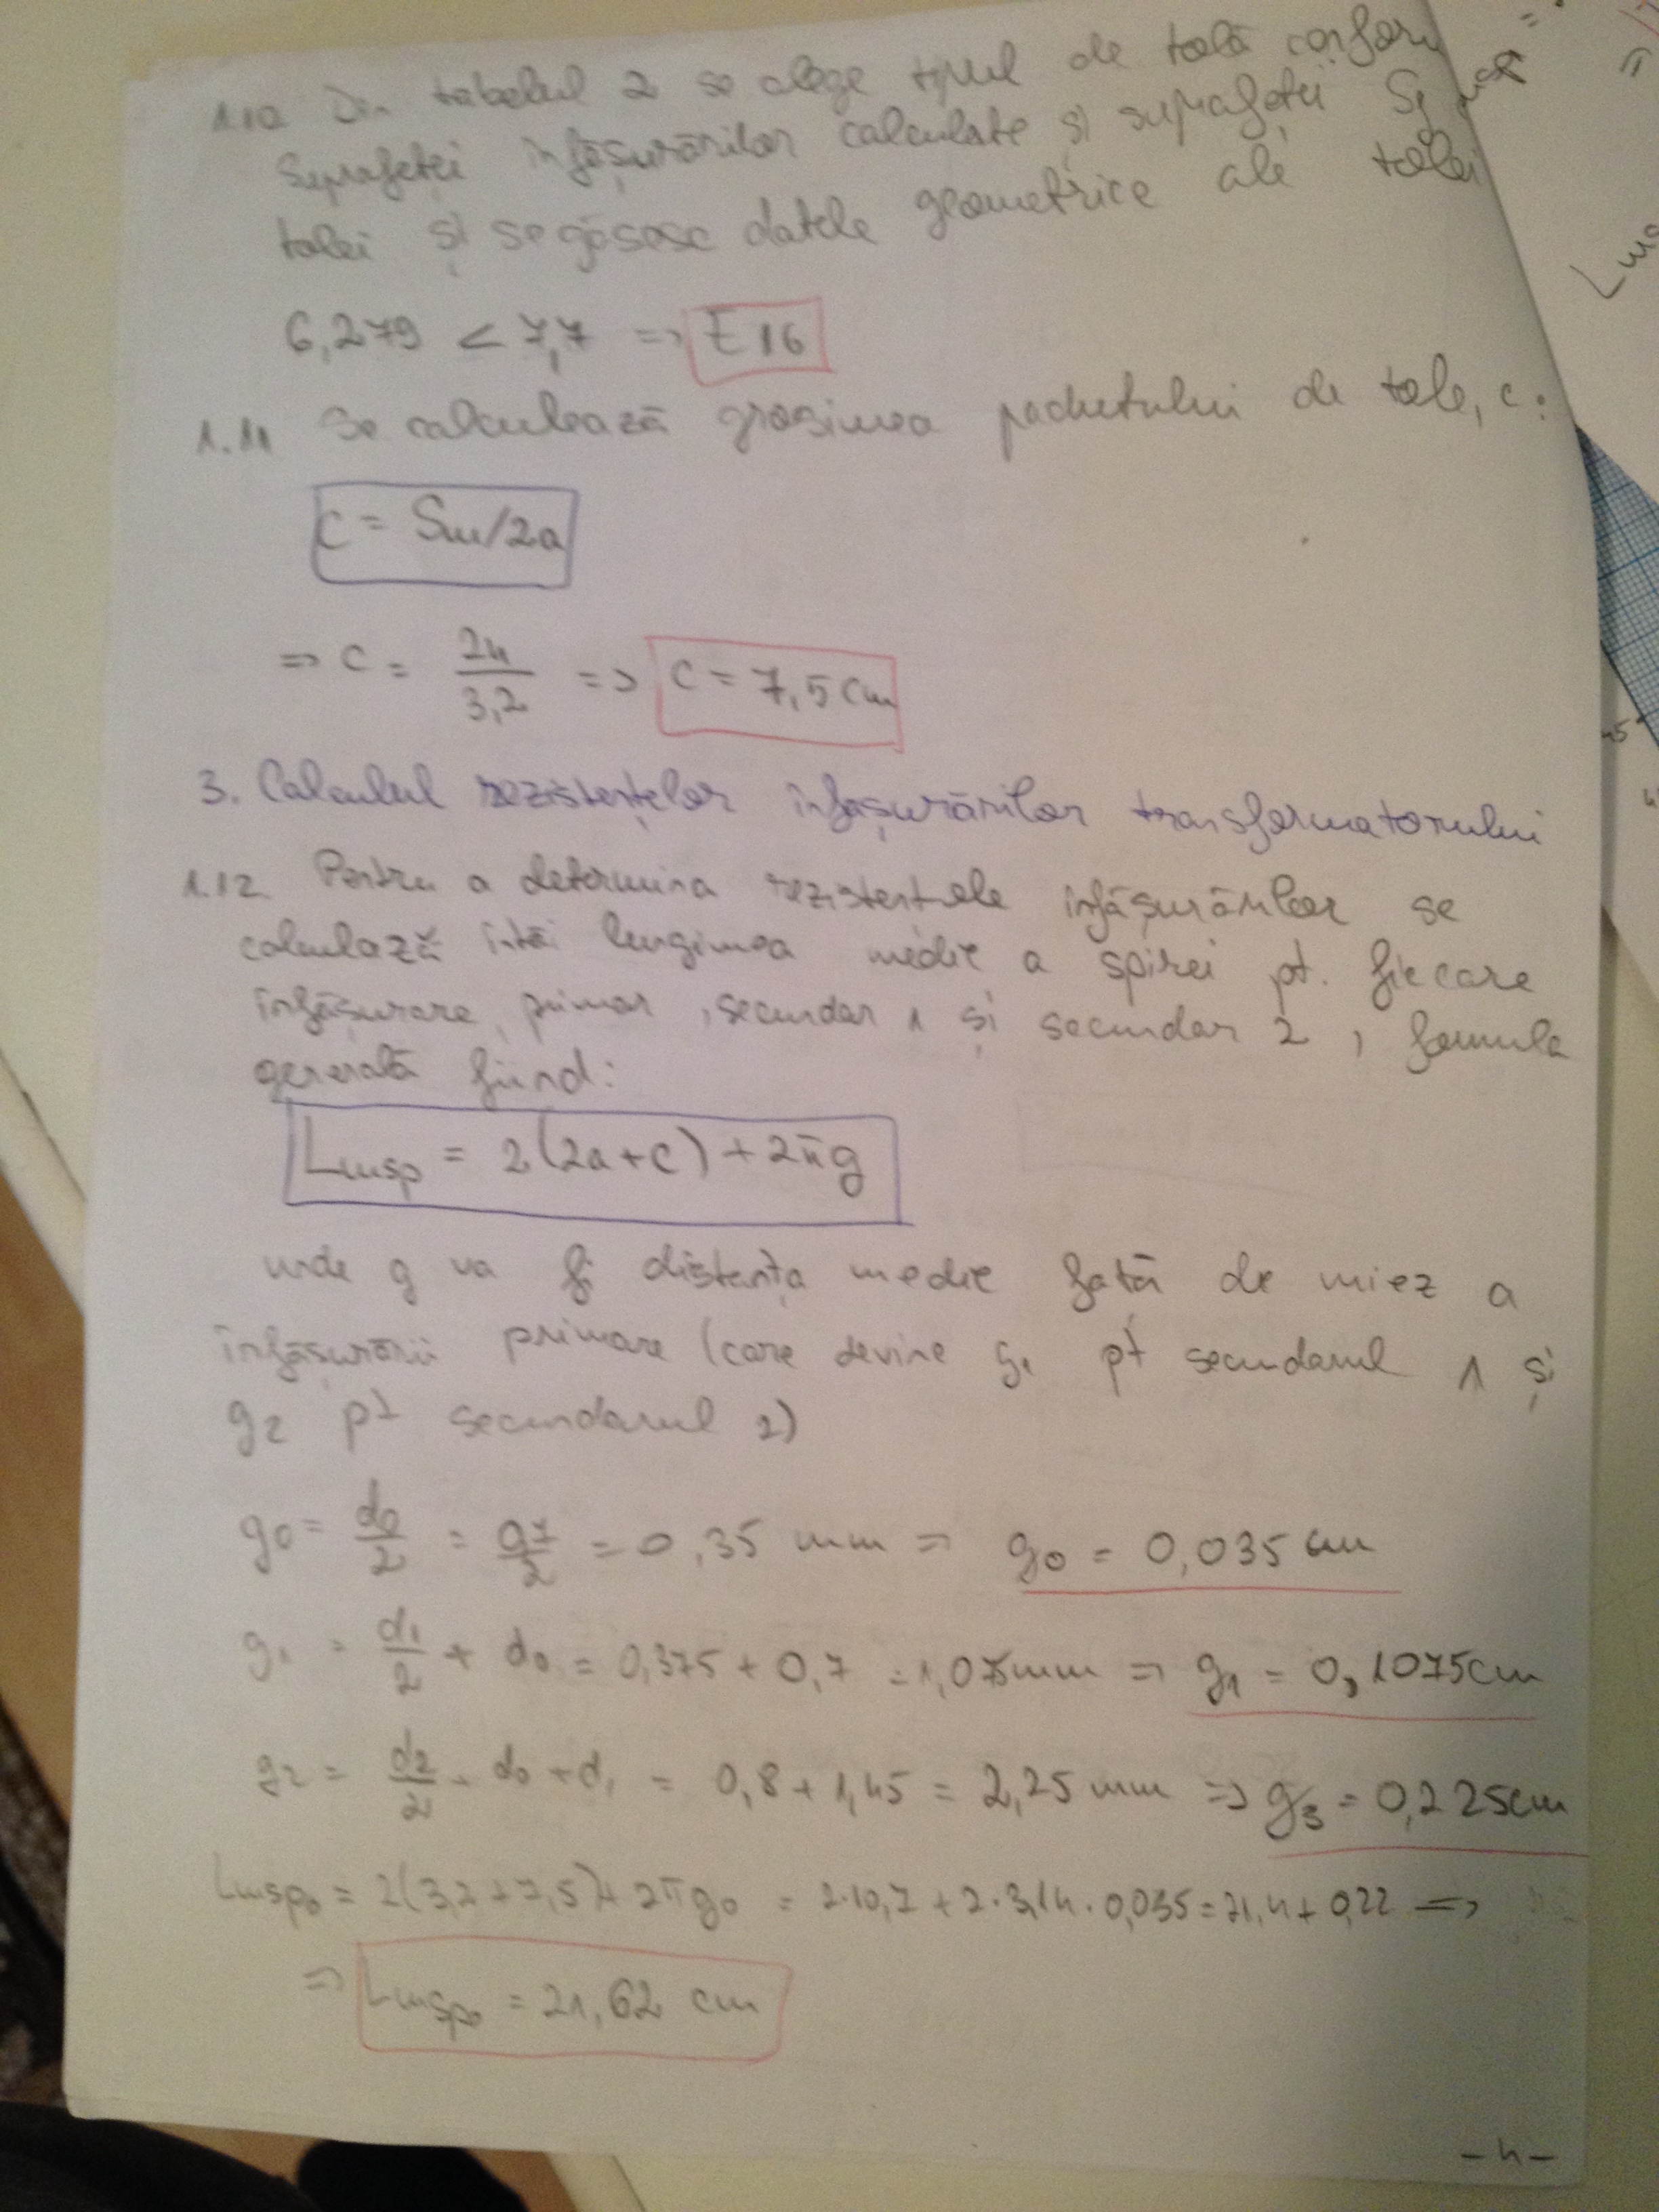 1.10 Din tabelul 2 se alege tipul de tolă conform
Suprafeței înfășurărilor calculate și suprafeței Sj
tolei și se găsesc datele geometrice ale tolei
6,279 < 7,7 => E16
1.11 Se calculează grosimea pachetului de tole, c:
C = Sm/2a
=> C = 24/3,2 => C = 7,5 cm
3. Calculul rezistențelor înfășurărilor transformatorului
1.12 Pentru a determina rezistentele înfășurărilor se
calculază întâi lungimea medie a spirei pt. fiecare
înfășurare, primar, secundar 1 și secundar 2, formula
generală fiind:
Lmsp = 2(2a+c)+2πg
unde g va fi distanța medie față de miez a
înfășurării primare (care devine g1 pt secundarul 1 și
g2 pt secundarul 2)
g0 = d0/2 = 0,7/2 = 0,35 mm => g0 = 0,035 cm
g1 = d1/2 + d0 = 0,375 + 0,7 = 1,075mm => g1 = 0,1075cm
g2 = d2/2 + d0 + d1 = 0,8 + 1,45 = 2,25 mm => g3 = 0,225cm
Lmsp0 = 2(3,2+7,5)+2πg0 = 2·10,7 + 2·3,14·0,035 = 21,4 + 0,22 =>
=> Lmsp0 = 21,62 cm
-4-